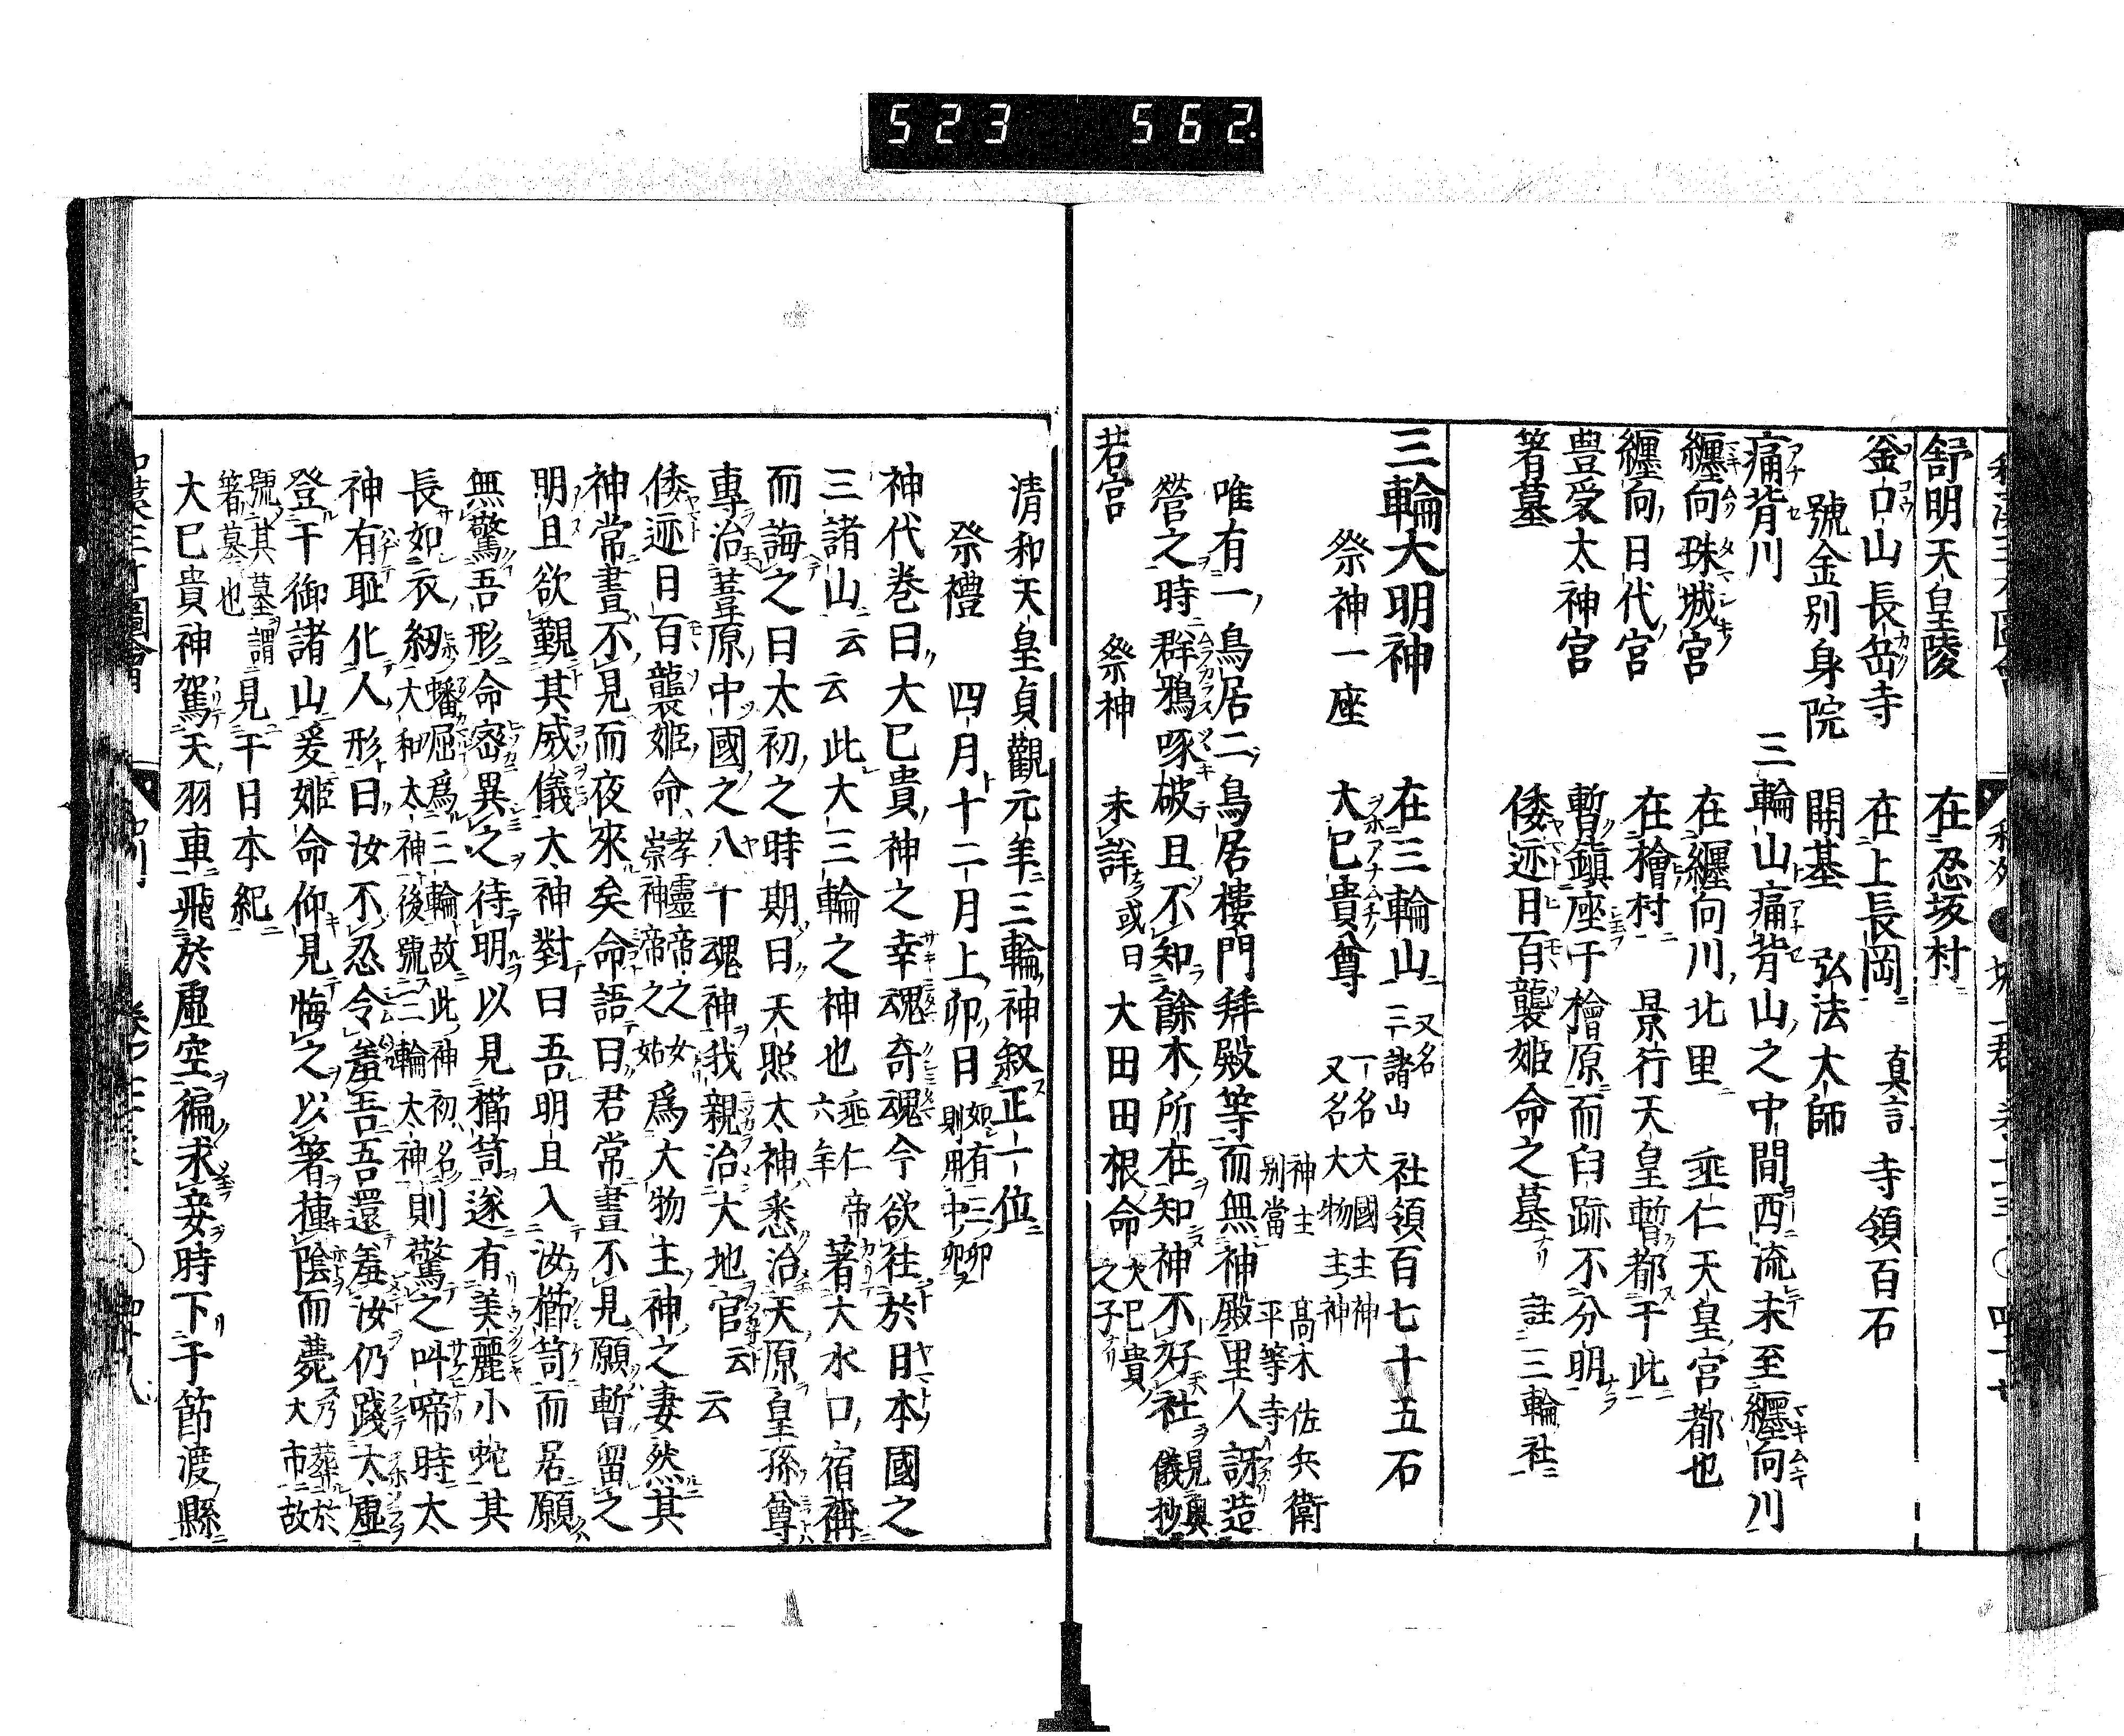 523 562.
舒明天皇陵 在忍坂村
釜口山長岳寺 在上長岡 真言 寺領百石
號金剛身院 開基 弘法大師
痛背川 三輪山痛背山之中間西流末至纏向川
纏向珠城宮 在纏向川北里 垂仁天皇宮都也
纏向日代宮 在檜村 景行天皇暫都于此
豊受太神宮 暫鎮座于檜原而舊跡不分明
箸墓 倭迹日百襲姫命之墓 註三輪社
三輪大明神 在三輪山 又名三諸山 社領百七十五石
祭神一座 大己貴尊 一名大國主神 又名大物主神 神主 高木佐兵衛 別當 平等寺
唯有一鳥居二鳥居樓門拜殿等而無神殿里人訝造
營之時群鴉啄破且不知餘木所在知神不好社 見奧儀抄
若宮 祭神 未詳 或曰 大田田根命 大己貴之子
清和天皇貞觀元年三輪神叙正一位
祭禮 四月十二月上卯日 如有三卯則用中卯
神代巻曰大己貴神之幸魂奇魂今欲往於日本國之
三諸山云云此大三輪之神也 垂仁帝六年 著大水口宿禰
而誨之曰太初之時期曰天照太神悉治天原皇孫尊
專治葦原中國之八十魂神我親治大地官云云
倭迹日百襲姫命 孝靈帝之女崇神帝之姑 爲大物主神之妻然其
神常晝不見而夜來矣命語曰君常晝不見願暫留之
明旦欲覲其威儀大神對曰吾明旦入汝櫛笥而居願
無驚吾形命密異之待明以見櫛笥遂有美麗小蛇其
長如衣紐 蟠屈爲三輪故此神初名大和太神後號三輪太神 則驚之叫啼時太
神有耻化人形曰汝不忍令羞吾吾還羞汝仍踐大虛
登于御諸山爰姫命仰見悔之以箸撞陰而薨 乃葬於大市故
號其墓謂箸墓也 見于日本紀
大己貴神駕天羽車飛於虛空徧求妾時下于節渡縣